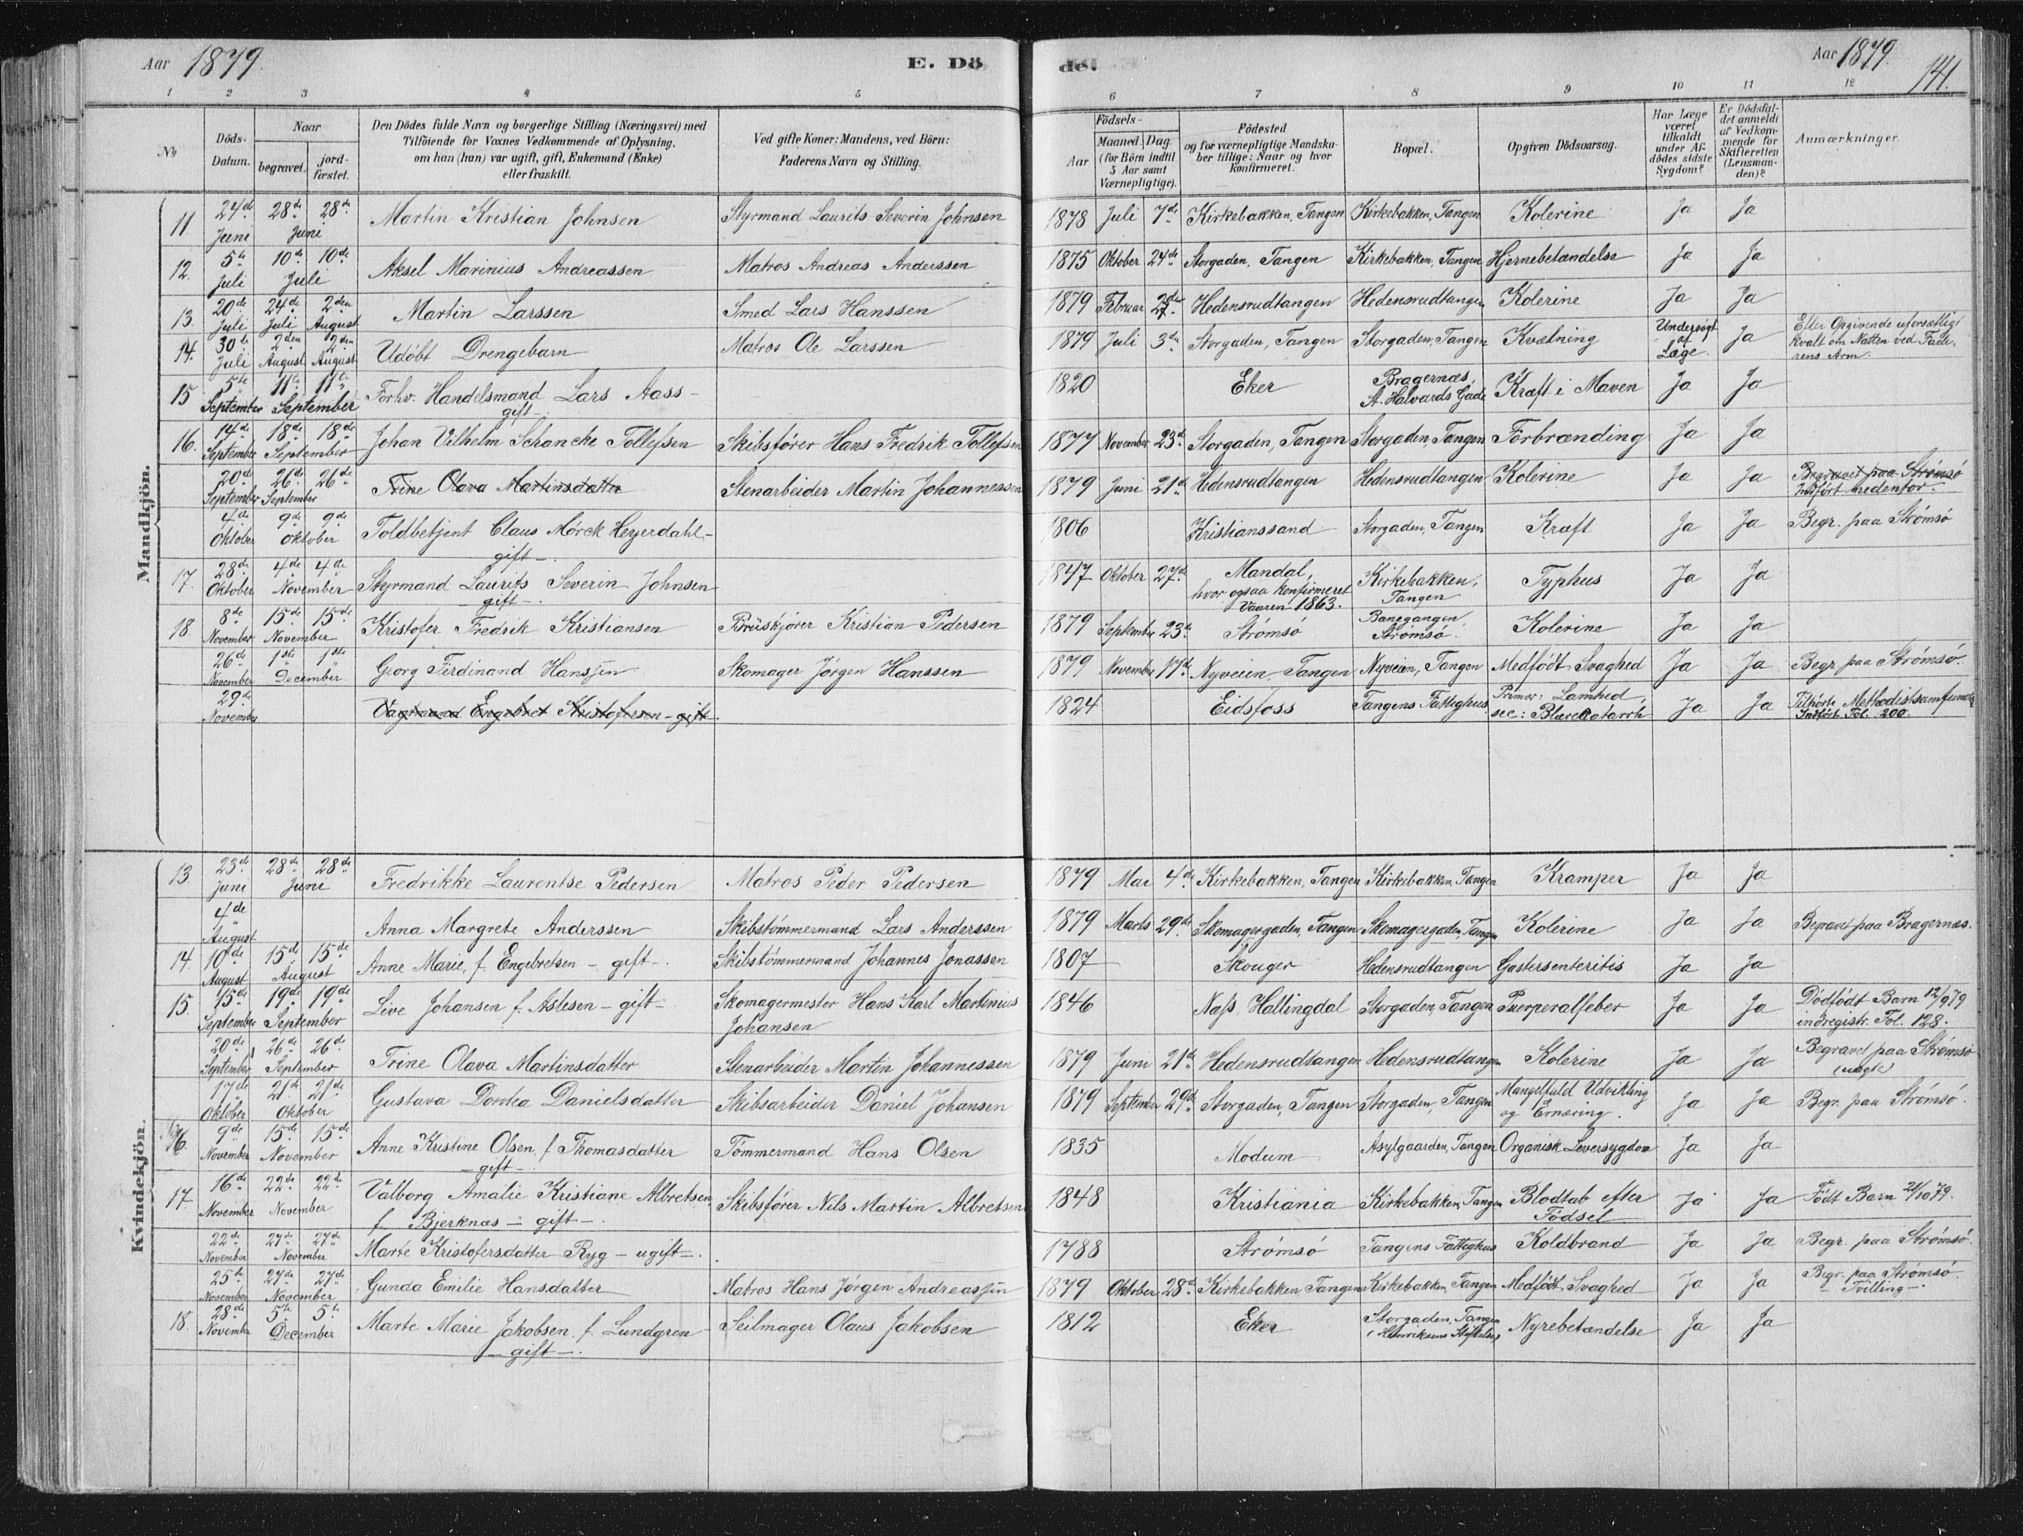 Aar 1879.
E. Dö
de.
Aar 1879
141.
1 2 3 4 5 6 7 8 9 10 11 12
No
Döds-Datum.
Naar
begravet.
jordfæstet.
Den Dödes fulde Navn og borgerlige Stilling (Næringsvei) med
Tilföiende for Voxnes Vedkommende af Oplysning,
om han (hun) var ugift, gift, Enkemand (Enke)
eller fraskilt.
Ved gifte Koner: Mandens, ved Börn:
Faderens Navn og Stilling.
Födsels-
Aar
Maaned. Dag.
(for Börn indtil
5 Aar samt
Værnepligtige).
Födested
og for værnepligtige Mandskaber tillige: Naar og hvor
konfirmeret.
Bopæl.
Opgiven Dödsaarsag.
Har Læge
været
tilkaldt
under Afdödes sidste
Sygdom?
Er Dödsfaldet anmeldt
af Vedkommende for
Skifteretten
(Lensmanden)?
Anmærkninger.
Mandkjön.
11. 24de Juni 28de 28de Juni Martin Kristian Johnsen Styrmand Laurits Severin Johnsen 1878 Juli 7de Kirkebakken, Tangen Kirkebakken, Tangen Kolerine Ja Ja
12. 5te Juli 10de 10de Juli Aksel Marinius Andreassen Matros Andreas Anderssen 1875 Oktober 24de Storgaden, Tangen Kirkebakken, Tangen Hjernebetændelse Ja Ja
13. 20de Juli 24de Juli 2den August Martin Larssen Smed Lars Hanssen 1879 Februar 27de Hedensrudtangen Hedensrudtangen Kolerine Ja Ja
14. 30te Juli 2den August 2den August Udöbt Drengebarn Matros Ole Larssen 1879 Juli 3die Storgaden, Tangen Storgaden, Tangen Kvælning Undersögt af Læge. Ja Efter Opgivende uforsætlig kvalt om Natten ved Faderens Arm.
15 5te September 11te 11te September Forhv. Handelsmand Lars Aass - gift - 1820 Eker Bragernæs, St. Halvards Gade Kræft i Maven Ja Ja
16. 14de September 18de 18de September Johan Vilhelm Schancke Tollefsen Skibsfører Hans Fredrik Tollefsen 1877 November 23de Storgaden, Tangen Storgaden, Tangen Forbrænding Ja Ja
20de September 26de 26de September Trine Olava Martinsdatter Stenarbeider Martin Johannessen 1879 Juni 21de Hedensrudtangen Hedensrudtangen Kolerine Ja Ja Begravet paa Strømsø Indført nedenfor.
4de Oktober 9de 9de Oktober Toldbetjent Claus Mörck Heyerdahl - gift - 1806 Kristianssand Storgaden, Tangen Kræft Ja Ja Begr. paa Strømsø
17. 28de Oktober 4de 4de November Styrmand Laurits Severin Johnsen - gift - 1847 Oktober 27de Mandal, hvor ogsaa konfirmeret Vaaren 1863. Kirkebakken, Tangen Typhus Ja Ja
18 8de November 15de 15de November Kristofer Fredrik Kristiansen Brüskjører Kristian Pedersen 1879 September 23de Strømsø Banegangen, Strømsø. Kolerine Ja Ja
26de November 1ste 1ste December Georg Ferdinand Hanssen Skomager Jørgen Hanssen 1879 November 17de Nyveien, Tangen Nyveien, Tangen Medfödt Svaghed Ja Ja Begr. paa Strømsø.
29de November Vægtmand Engebret Kristofersen - gift - 1824 Eidsfoss Tangens Fattighus Primær: Lamhed, sec: Blærekatarrh Ja Ja Tilhørte Methodistsamfundet Indført Fol. 200.
Kvindekjön.
13. 23de Juni 28de 28de Juni Fredrikke Laurentse Pedersen Matros Peder Pedersen 1879 Mai 4de Kirkebakken, Tangen Kirkebakken, Tangen Kramper Ja Ja
4de August Anna Margrete Anderssen Skibstømmermand Lars Anderssen 1879 Marts 29de Skomagergaden, Tangen Skomagergaden, Tangen Kolerine Ja Ja Begravet paa Bragernæs.
14. 10de August 15de 15de August Anne Marie, f. Engebretsen - gift - Skibstømmermand Johannes Jonassen 1807 Skouger Hedensrudtangen Gastersenteritis Ja Ja
15. 15de September 19de 19de September Live Johansen f. Aslesen - gift - Skomagermester Hans Karl Martinius Johansen 1846 Næss, Hallingdal Storgaden, Tangen Puerperalfeber Ja Ja Dödfödt Barn 12/9 79 indregistr. Fol. 128.
20de September 26de 26de September Trine Olava Martinsdatter Stenarbeider Martin Johannessen 1879 Juni 21de Hedensrudtangen Hedensrudtangen Kolerine Ja Ja Begravet paa Strømsø (uægte)
17de Oktober 21de 21de Oktober Gustava Dorotea Danielsdatter Skibsarbeider Daniel Johansen 1879 September 29de Storgaden, Tangen Storgaden, Tangen Mangelfuld Udvikling og Ernæring. Ja Ja Begr. paa Strømsø.
16 9de November 15de 15de November Anne Kristine Olsen, f. Thomasdatter - gift - Tømmermand Hans Olsen 1835 Modum Asylgaarden, Tangen Organisk Leversygdom Ja Ja
17. 16de November 22de 22de November Valborg Amalie Kristiane Albretsen f. Bjerknæs - gift - Skibsfører Nils Martin Albretsen 1848 Kristiania Kirkebakken, Tangen Blodtab efter Födsel Ja Ja Födt Barn 21/10 79.
22de November 27de 27de November Marte Kristofersdatter Ryg - ugift - 1788 Strømsø Tangens Fattighus Koldbrand Ja Ja Begr. paa Strømsø.
25de November 27de 27de November Gunda Emilie Hansdatter Matros Hans Jørgen Andreassen 1879 Oktober 28de Kirkebakken Tangen Kirkebakken, Tangen Medfödt Svaghed Ja Ja Begr. paa Strømsø - Tvilling -
18. 28de November 5te 5te December Marte Marie Jakobsen, f. Lundgren - gift - Seilmager Olaus Jakobsen 1812 Eker Storgaden, Tangen (Henriksens Stiftelse) Nyrebetændelse Ja Ja